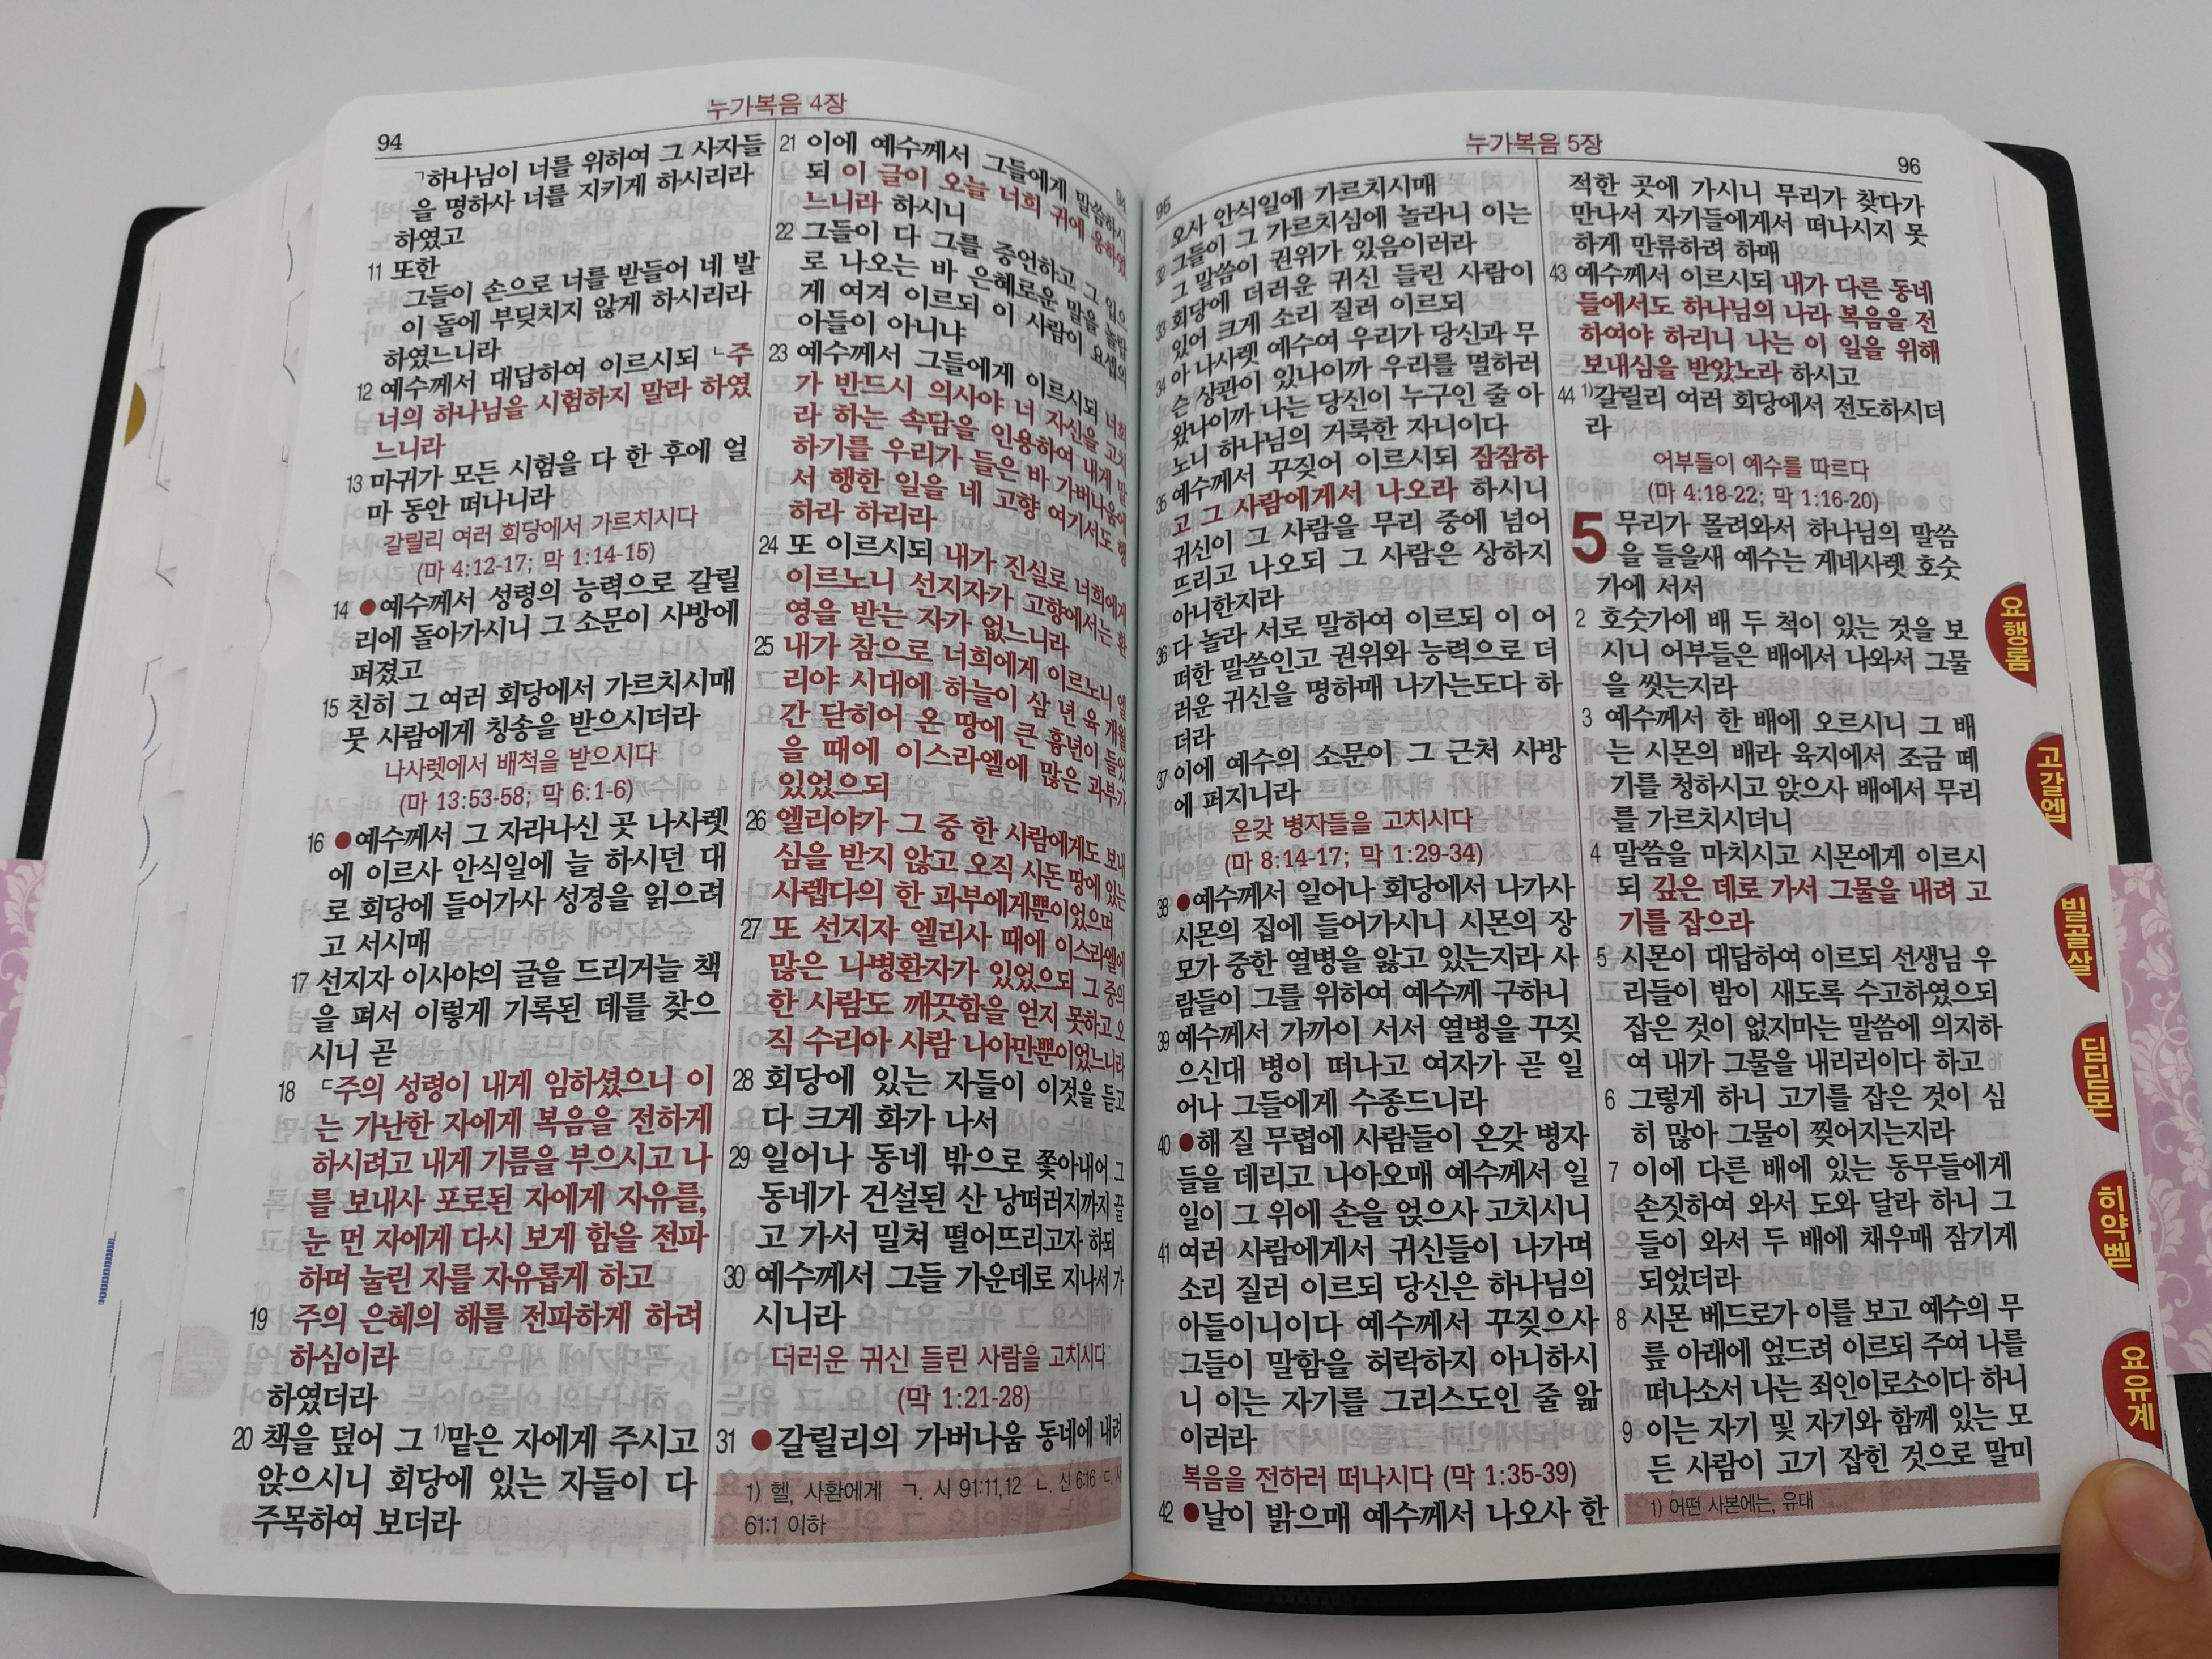 누가복음 4장
94
ㄱ하나님이 너를 위하여 그 사자들
을 명하사 너를 지키게 하시리라
하였고
11 또한
그들이 손으로 너를 받들어 네 발
이 돌에 부딪치지 않게 하시리라
하였느니라
12 예수께서 대답하여 이르시되 ㄴ주
너의 하나님을 시험하지 말라 하였
느니라
13 마귀가 모든 시험을 다 한 후에 얼
마 동안 떠나니라
갈릴리 여러 회당에서 가르치시다
(마 4:12-17; 막 1:14-15)
14 ●예수께서 성령의 능력으로 갈릴
리에 돌아가시니 그 소문이 사방에
퍼졌고
15 친히 그 여러 회당에서 가르치시매
뭇 사람에게 칭송을 받으시더라
나사렛에서 배척을 받으시다
(마 13:53-58; 막 6:1-6)
16 ●예수께서 그 자라나신 곳 나사렛
에 이르사 안식일에 늘 하시던 대
로 회당에 들어가사 성경을 읽으려
고 서시매
17 선지자 이사야의 글을 드리거늘 책
을 펴서 이렇게 기록된 데를 찾으
시니 곧
18 ㄷ주의 성령이 내게 임하셨으니 이
는 가난한 자에게 복음을 전하게
하시려고 내게 기름을 부으시고 나
를 보내사 포로된 자에게 자유를,
눈 먼 자에게 다시 보게 함을 전파
하며 눌린 자를 자유롭게 하고
19 주의 은혜의 해를 전파하게 하려
하심이라
하였더라
20 책을 덮어 그 1)맡은 자에게 주시고
앉으시니 회당에 있는 자들이 다
주목하여 보더라
21 이에 예수께서 그들에게 말씀하시
되 이 글이 오늘 너희 귀에 응하였
느니라 하시니
22 그들이 다 그를 증언하고 그 입으
로 나오는 바 은혜로운 말을 놀랍
게 여겨 이르되 이 사람이 요셉의
아들이 아니냐
23 예수께서 그들에게 이르시되 너희
가 반드시 의사야 너 자신을 고치
라 하는 속담을 인용하여 내게 말
하기를 우리가 들은 바 가버나움에
서 행한 일을 네 고향 여기서도 행
하라 하리라
24 또 이르시되 내가 진실로 너희에게
이르노니 선지자가 고향에서는 환
영을 받는 자가 없느니라
25 내가 참으로 너희에게 이르노니 엘
리야 시대에 하늘이 삼 년 육 개월
간 닫히어 온 땅에 큰 흉년이 들었
을 때에 이스라엘에 많은 과부가
있었으되
26 엘리야가 그 중 한 사람에게도 보내
심을 받지 않고 오직 시돈 땅에 있는
사렙다의 한 과부에게뿐이었으며
27 또 선지자 엘리사 때에 이스라엘에
많은 나병환자가 있었으되 그 중의
한 사람도 깨끗함을 얻지 못하고 오
직 수리아 사람 나아만뿐이었느니라
28 회당에 있는 자들이 이것을 듣고
다 크게 화가 나서
29 일어나 동네 밖으로 쫓아내어 그
동네가 건설된 산 낭떠러지까지 끌
고 가서 밀쳐 떨어뜨리고자 하되
30 예수께서 그들 가운데로 지나서 가
시니라
더러운 귀신 들린 사람을 고치시다
(막 1:21-28)
31 ●갈릴리의 가버나움 동네에 내려
1) 헬, 사환에게 ㄱ. 시 91:11,12 ㄴ. 신 6:16 ㄷ. 사
61:1 이하
누가복음 5장
95
96
오사 안식일에 가르치시매
32 그들이 그 가르치심에 놀라니 이는
그 말씀이 권위가 있음이러라
33 회당에 더러운 귀신 들린 사람이
있어 크게 소리 질러 이르되
34 아 나사렛 예수여 우리가 당신과 무
슨 상관이 있나이까 우리를 멸하러
왔나이까 나는 당신이 누구인 줄 아
노니 하나님의 거룩한 자니이다
35 예수께서 꾸짖어 이르시되 잠잠하
고 그 사람에게서 나오라 하시니
귀신이 그 사람을 무리 중에 넘어
뜨리고 나오되 그 사람은 상하지
아니한지라
36 다 놀라 서로 말하여 이르되 이 어
떠한 말씀인고 권위와 능력으로 더
러운 귀신을 명하매 나가는도다 하
더라
37 이에 예수의 소문이 그 근처 사방
에 퍼지니라
온갖 병자들을 고치시다
(마 8:14-17; 막 1:29-34)
38 ●예수께서 일어나 회당에서 나가사
시몬의 집에 들어가시니 시몬의 장
모가 중한 열병을 앓고 있는지라 사
람들이 그를 위하여 예수께 구하니
39 예수께서 가까이 서서 열병을 꾸짖
으신대 병이 떠나고 여자가 곧 일
어나 그들에게 수종드니라
40 ●해 질 무렵에 사람들이 온갖 병자
들을 데리고 나아오매 예수께서 일
일이 그 위에 손을 얹으사 고치시니
41 여러 사람에게서 귀신들이 나가며
소리 질러 이르되 당신은 하나님의
아들이니이다 예수께서 꾸짖으사
그들이 말함을 허락하지 아니하시
니 이는 자기를 그리스도인 줄 앎
이러라
복음을 전하러 떠나시다 (막 1:35-39)
42 ●날이 밝으매 예수께서 나오사 한
적한 곳에 가시니 무리가 찾다가
만나서 자기들에게서 떠나시지 못
하게 만류하려 하매
43 예수께서 이르시되 내가 다른 동네
들에서도 하나님의 나라 복음을 전
하여야 하리니 나는 이 일을 위해
보내심을 받았노라 하시고
44 1)갈릴리 여러 회당에서 전도하시더
라
어부들이 예수를 따르다
(마 4:18-22; 막 1:16-20)
5 무리가 몰려와서 하나님의 말씀
을 들을새 예수는 게네사렛 호숫
가에 서서
2 호숫가에 배 두 척이 있는 것을 보
시니 어부들은 배에서 나와서 그물
을 씻는지라
3 예수께서 한 배에 오르시니 그 배
는 시몬의 배라 육지에서 조금 떼
기를 청하시고 앉으사 배에서 무리
를 가르치시더니
4 말씀을 마치시고 시몬에게 이르시
되 깊은 데로 가서 그물을 내려 고
기를 잡으라
5 시몬이 대답하여 이르되 선생님 우
리들이 밤이 새도록 수고하였으되
잡은 것이 없지마는 말씀에 의지하
여 내가 그물을 내리리이다 하고
6 그렇게 하니 고기를 잡은 것이 심
히 많아 그물이 찢어지는지라
7 이에 다른 배에 있는 동무들에게
손짓하여 와서 도와 달라 하니 그
들이 와서 두 배에 채우매 잠기게
되었더라
8 시몬 베드로가 이를 보고 예수의 무
릎 아래에 엎드려 이르되 주여 나를
떠나소서 나는 죄인이로소이다 하니
9 이는 자기 및 자기와 함께 있는 모
든 사람이 고기 잡힌 것으로 말미
1) 어떤 사본에는, 유대
요행롬
고갈엡
빌골살
딤딛몬
히약벧
요유계